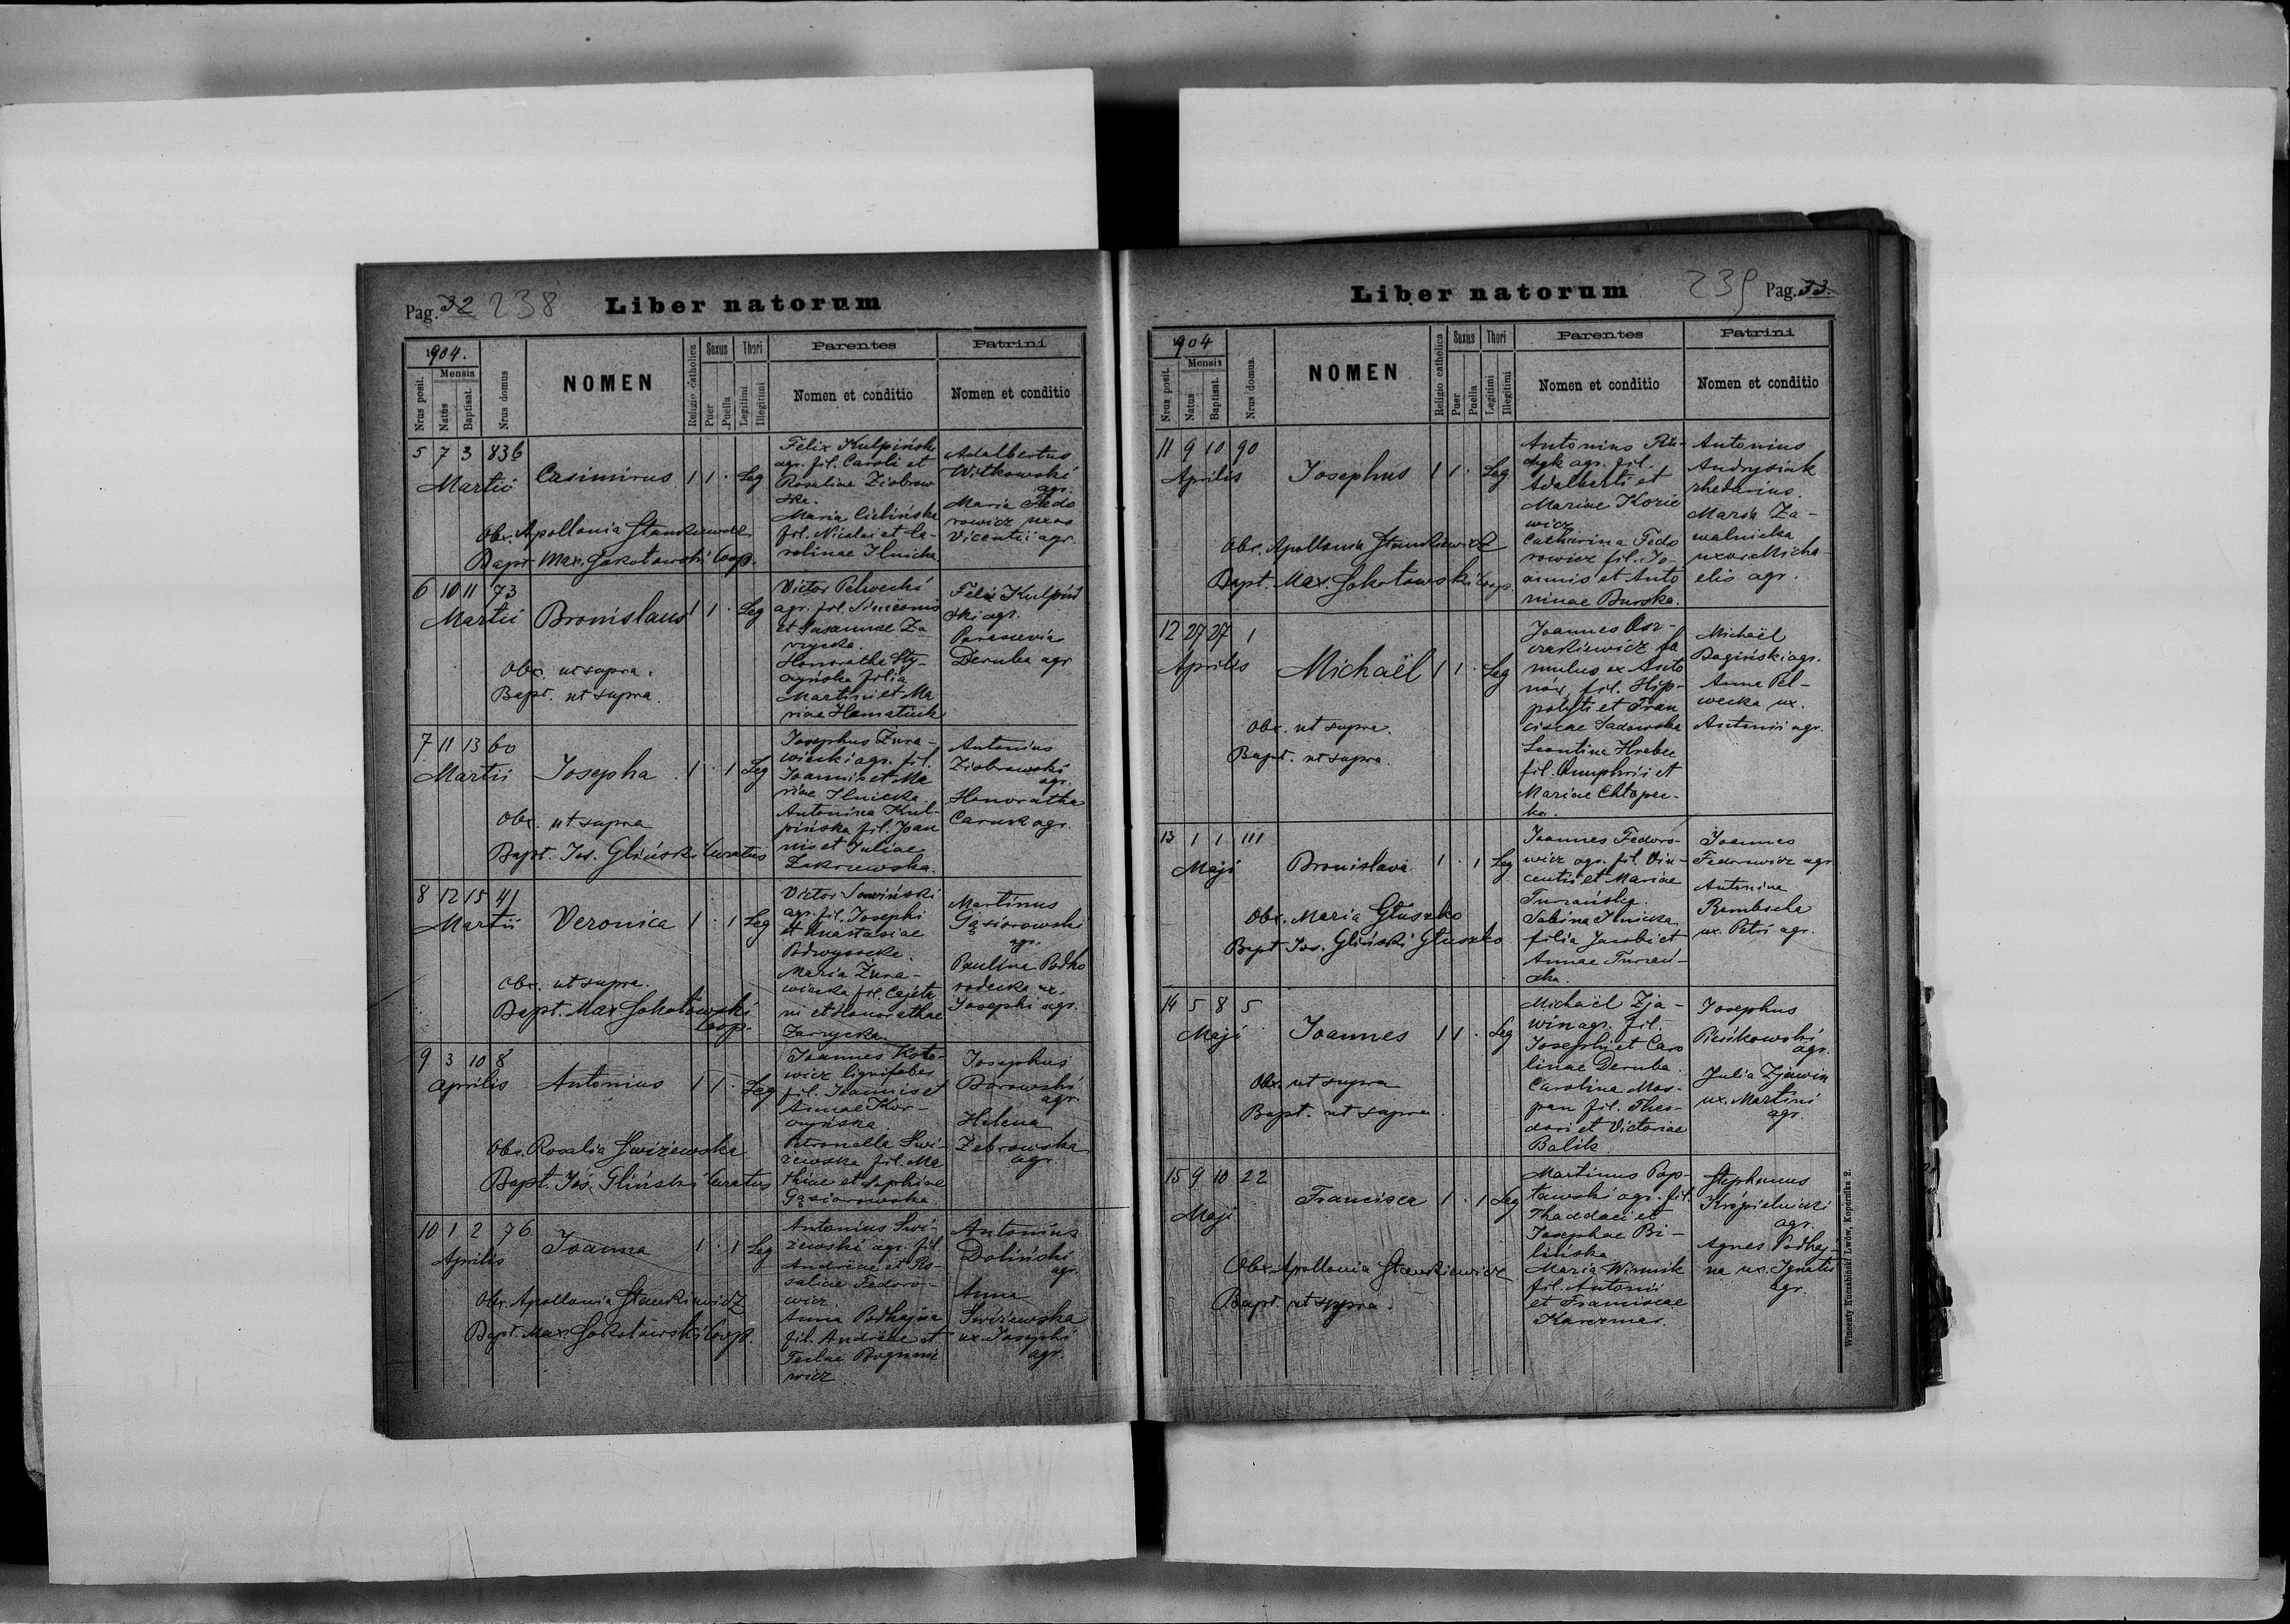 Pag. 32 238 Liber natorum
1904.
Mensis
Nrus posit.
Natus
Baptisat.
Nrus domus
NOMEN
Religio catholica
Sexus
Puer
Puella
Thori
Legitimi
Illegitimi
Parentes
Nomen et conditio
Patrini
Nomen et conditio
5 7 3 836
Martii
Casimirus 1 1 . Leg
Obs. Apollonia Stankiewicz
Bapt. Max. Sokołowski Coop.
Felix Kulpiński
agr. fil. Caroli et
Rosaliae Ziobrow
ska.
Maria Cielińska
fil. Nicolai et Ca-
rolinae Ilnicka
Adalbertus
Witkowski
agr.
Maria Fedo
rowicz uxor
Vicentii agr.
6 10 11 73
Martii
Bronislaus 1 1 . Leg
Obs. ut supra.
Bapt. ut supra.
Victor Pelwecki
agr. fil. Simeonis
et Susannae Za
rzycka.
Honoratha Sty-
czyńska filia
Martini et Ma
riae Hamatiuk
Felix Kulpiń
ski agr.
Parascevia
Deruba agr
7 11 13 60
Martii
Josepha 1 . 1 Leg
Obs. ut supra
Bapt. Jos. Gliński Curatus
Josephus Żura-
wiecki agr. fil.
Joannis et Ma
riae Ilnicka
Antonina Kul-
pińska fil. Joan
nis et Juliae
Zakrzewska.
Antonius
Ziobrowski
agr.
Honoratha
Caruk agr.
8 12 15 41
Martii
Veronica 1 . 1 Leg
Obs. ut supra.
Bapt. Max Sokołowski
Coop.
Victor Sawiński
agr. fil. Josephi
et Anastasiae
Podwysocka.
Maria Żura-
wiecka fil. Cajeta
ni et Honorathae
Zarzycka.
Martinus
Gąsiorowski
agr.
Paulina Podho
rodecka ux.
Josephi agr.
9 3 10 8
Aprilis
Antonius 1 1 . Leg
Obs. Rosalia Świżewska
Bapt. Jos. Gliński Curatus
Joannes Koto-
wicz lignifaber
fil. Joannis et
Annae Kor-
czyńska
Petronella Świ-
żewska fil. Ma
thiae et Sophiae
Gąsiorowska
Josephus
Borowski
agr.
Helena
Żebrowska
agr.
10 1 2 76
Aprilis
Joanna 1 . 1 Leg
Obs. Apollonia Stankiewicz
Bapt. Max Sokołowski Coop.
Antonius Świ-
żewski agr. fil.
Andreae et Ro-
saliae Fedoro-
wicz.
Anna Podhajna
fil. Andreae et
Teclae Bogunie
wicz.
Antonius
Doliński
agr.
Anna
Świżewska
ux. Josephi
agr.
Liber natorum 239 Pag. 33.
1904
Mensis
Nrus posit.
Natus
Baptisat.
Nrus domus.
NOMEN
Religio catholica
Sexus
Puer
Puella
Thori
Legitimi
Illegitimi
Parentes
Nomen et conditio
Patrini
Nomen et conditio
11 9 10 90
Aprilis
Josephus 1 1 . Leg
Obs. Apollonia Stankiewicz
Bapt. Max Sokołowski Coop.
Antonius Ru-
dyk agr. fil.
Adalberti et
Mariae Korie
wicz
Catharina Fedo
rowicz fil. Jo-
annis et Anto
ninae Burska.
Antonius
Andrysiak
rhedarius.
Maria Za-
walnicka
uxor Micha-
elis agr.
12 27 27 1
Aprilis
Michaël 1 1 . Leg
Obs. ut supra.
Bapt. ut supra.
famulus ex Anto
nów, fil. Hip-
polyti et Fran
ciscae Sadowska
Leontina Hrabec
fil. Onuphrii et
Mariae Chłopec-
ka.
Michaël
Bagiński agr.
Anna Pel-
wecka ux.
Antonii agr.
13 1 1 111
Maji
Bronislava 1 . 1 Leg
Obs. Maria Głuszko
Bapt. Jos. Gliński Głuszko
Joannes Fedoro-
wicz agr. fil. Vin-
centii et Mariae
Turzańska.
Sabina Ilnicka
filia Jacobi et
Annae Turzań-
ska.
Joannes
Fedorowicz agr
Antonina
Rembocha
ux. Petri agr.
14 5 8 5
Maji
Joannes 1 1 . Leg
Obs. ut supra
Bapt. ut supra.
Michaël Zja-
win agr. fil.
Josephi et Caro
linae Deruba.
Carolina Mos-
pan fil. Theo-
dori et Victoriae
Balik.
Josephus
Pieńkowski
agr.
Julia Zjawin
ux. Martini
agr.
15 9 10 22
Maji
Francisca 1 . 1 Leg
Obs. Apollonia Stankiewicz
Bapt. ut supra.
Martinus Pop-
ławski agr. fil.
Thaddaei et
Josephae Bi-
lińska
Maria Winnik
fil. Antonii
et Franciscae
Karczmar.
Stephanus
Kropielnicki
agr.
Agnes Podhaj-
na ux. Ignatii
agr.
Wincenty Kuczabiński Lwów, Kopernika 2.